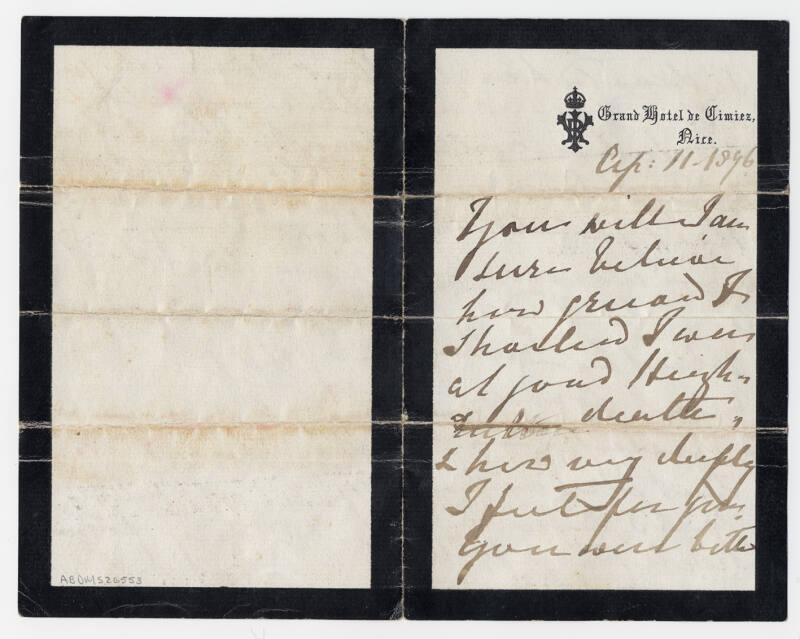 ABDMS26553
Grand Hotel de Cimiez,
Nice.
Ap: 11-1896
You will I am
sure believe
how grieved &
shocked I was
at good Hugh
death,
& how very deeply
I feel for you
You were both